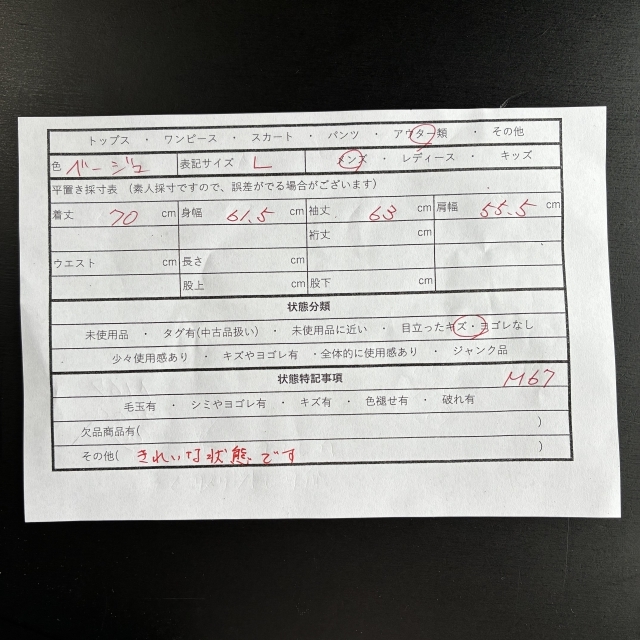 トップス ・ ワンピース ・ スカート ・ パンツ ・ アウター類 ・ その他
色 ベージュ 表記サイズ L メンズ ・ レディース ・ キッズ
平置き採寸表 (素人採寸ですので、誤差がでる場合がございます)
着丈 70 cm 身幅 61.5 cm 袖丈 63 cm 肩幅 55.5 cm
裄丈 cm
ウエスト cm 長さ cm
股上 cm 股下 cm
状態分類
未使用品 ・ タグ有(中古品扱い) ・ 未使用品に近い ・ 目立ったキズ・ヨゴレなし
少々使用感あり ・ キズやヨゴレ有 ・全体的に使用感あり ・ ジャンク品
状態特記事項 M67
毛玉有 ・ シミやヨゴレ有 ・ キズ有 ・ 色褪せ有 ・ 破れ有
欠品商品有( )
その他( きれいな状態です )